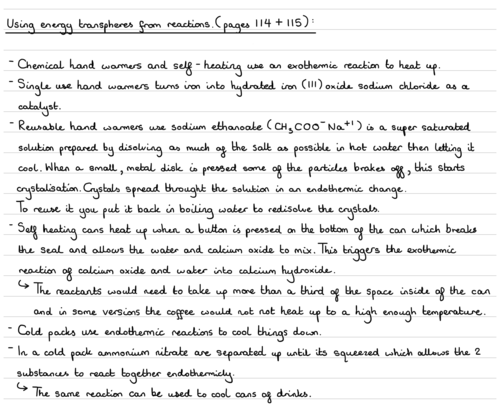 Using energy transpheres from reactions. (pages 114 + 115):
- Chemical hand warmers and self-heating use an exothermic reaction to heat up.
- Single use hand warmers turns iron into hydrated iron (III) oxide sodium chloride as a
catalyst.
- Reusable hand warmers use sodium ethanoate (CH₃COO⁻Na⁺¹) is a super saturated
solution prepared by disolving as much of the salt as possible in hot water then letting it
cool. When a small, metal disk is pressed some of the particles brakes off, this starts
crystalisation. Crystals spread throught the solution in an endothermic change.
To reuse it you put it back in boiling water to redisolve the crystals.
- Self heating cans heat up when a button is pressed on the bottom of the can which breaks
the seal and allows the water and calcium oxide to mix. This triggers the exothermic
reaction of calcium oxide and water into calcium hydroxide.
↳ The reactants would need to take up more than a third of the space inside of the can
and in some versions the coffee would not not heat up to a high enough temperature.
- Cold packs use endothermic reactions to cool things down.
- In a cold pack ammonium nitrate are separated up until its squeezed which allows the 2
substances to react together endothermicly.
↳ The same reaction can be used to cool cans of drinks.